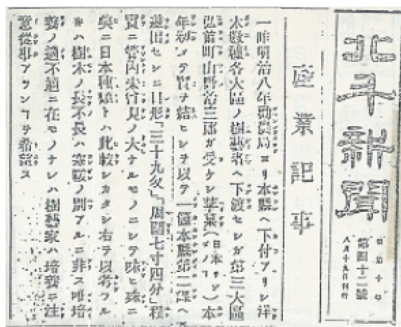 北斗新聞
明治十年
第四十二號
八月十九日刊行
産業記事
一昨明治八年勸農局ヨリ本縣ヘ下付アリシ洋
木數種各大區ノ樹藝者ヘ下渡セシガ第三大區
弘前町山野治三郎ガ受ケシ苹菓
本年初メテ實ヲ結ヒシヲ以テ一個本縣第二課ヘ
遞出セシニ目形「三十九匁」「周圍七寸四分」程
實ニ管内未曾見ノ大ナルモノニシテ味ヒ殊ニ
美ニ日本種類トハ比較シカタシ右ヲ以考フル
キハ樹木ノ長不長ハ寒暖ノ別アルニ非ス唯培
養ノ適不適ニ在モノナレハ樹藝家ハ培養ニ注
意從却アランコヲ希諾ス